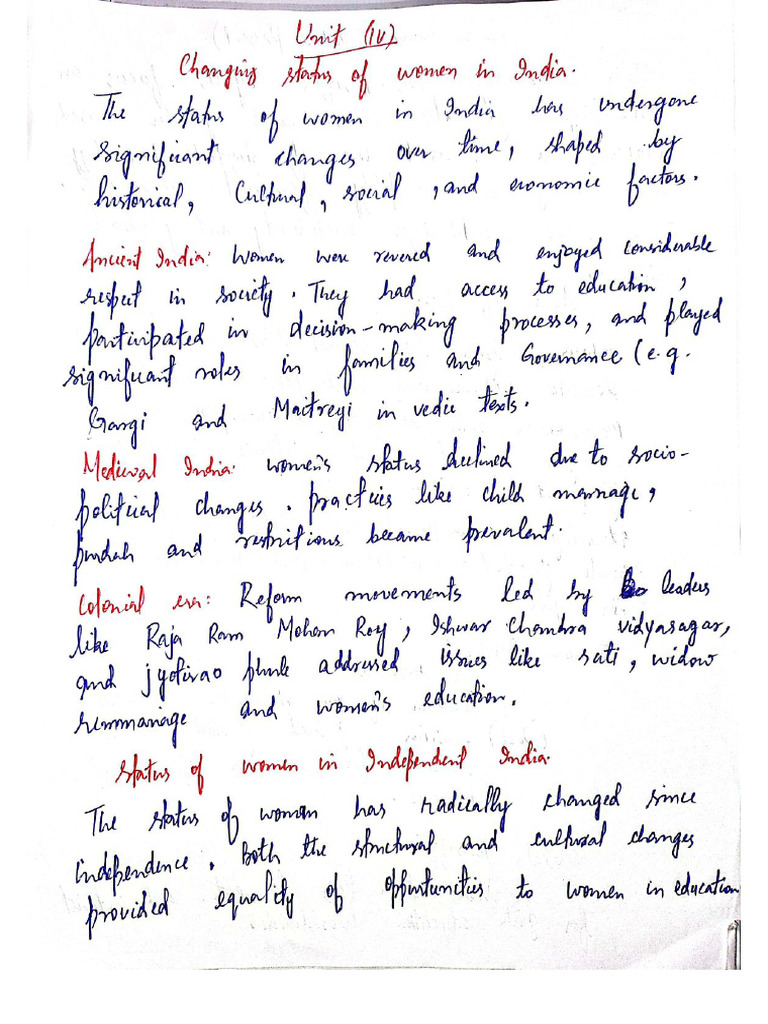 Unit (iv)
Changing status of women in India.
The status of women in India has undergone
significant changes over time, shaped by
historical, Cultural, social, and economic factors.
Ancient India: Women were revered and enjoyed considerable
respect in society. They had access to education,
participated in decision-making processes, and played
significant roles in families and Governance (e.g.
Gargi and Maitreyi in vedic texts.
Medieval India: women's status declined due to socio-
political changes. practices like child marriage,
purdah and restritions became prevalent.
Colonial era: Reform movements led by leaders
like Raja Ram Mohan Roy, Ishwar Chandra vidyasagar,
and jyotirao phule addressed issues like sati, widow
remmariage and women's education.
status of women in Independent India.
The status of women has radically changed since
independence. Both the structural and cultural changes
provided equality of opportunities to women in education